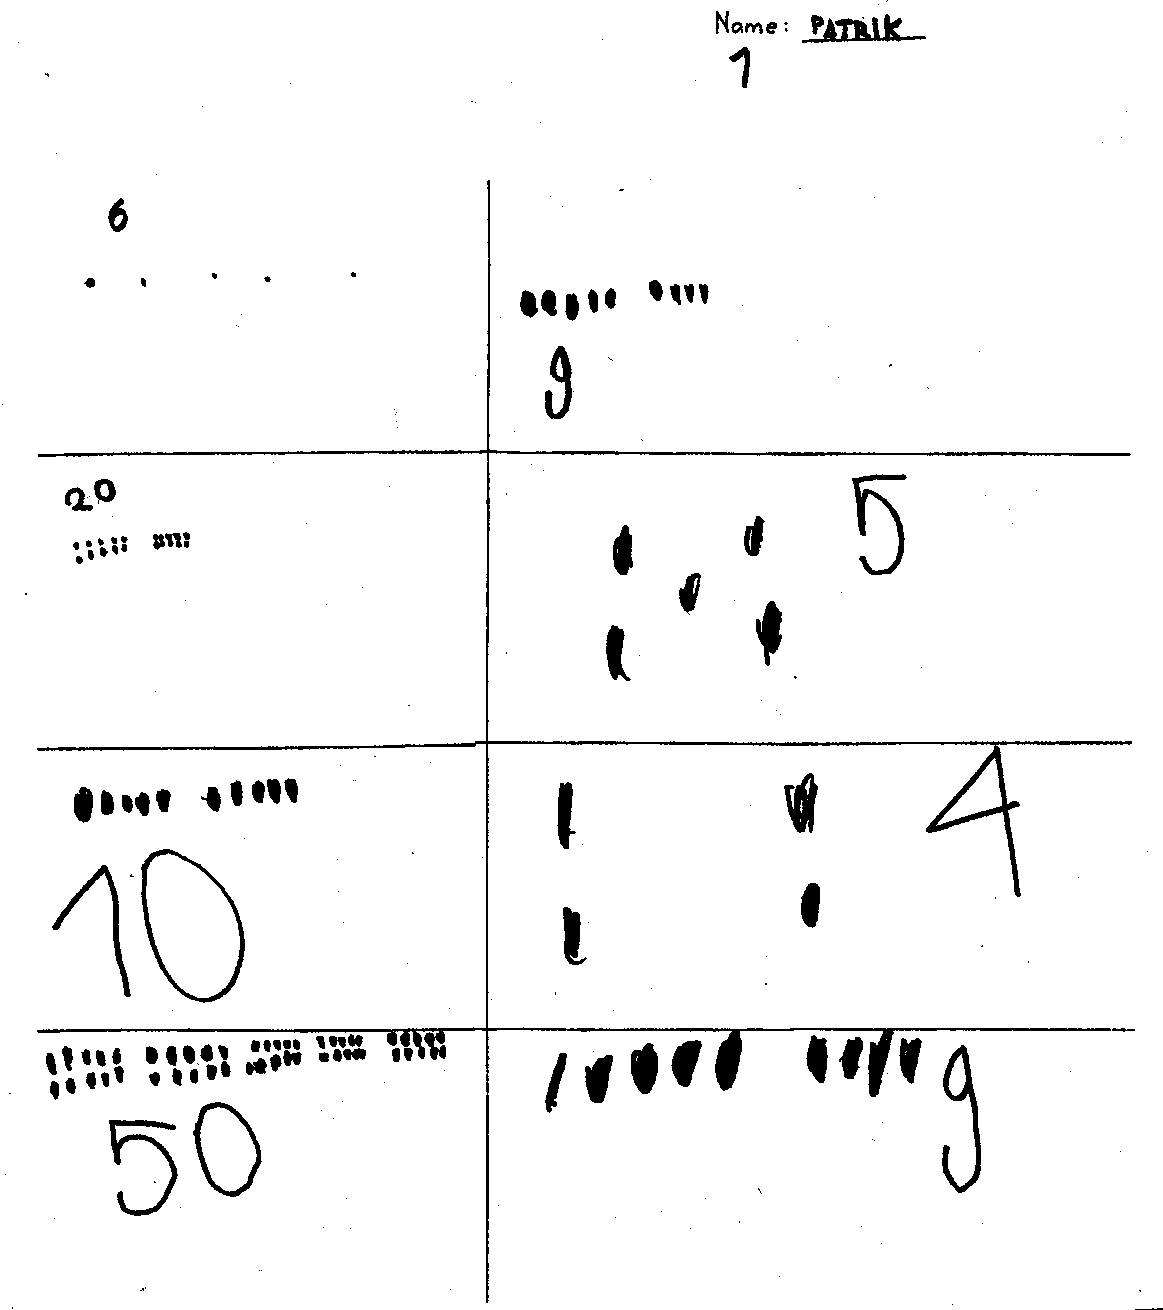 Name: PATRIK
1
6
9
20
5
10
4
50
9